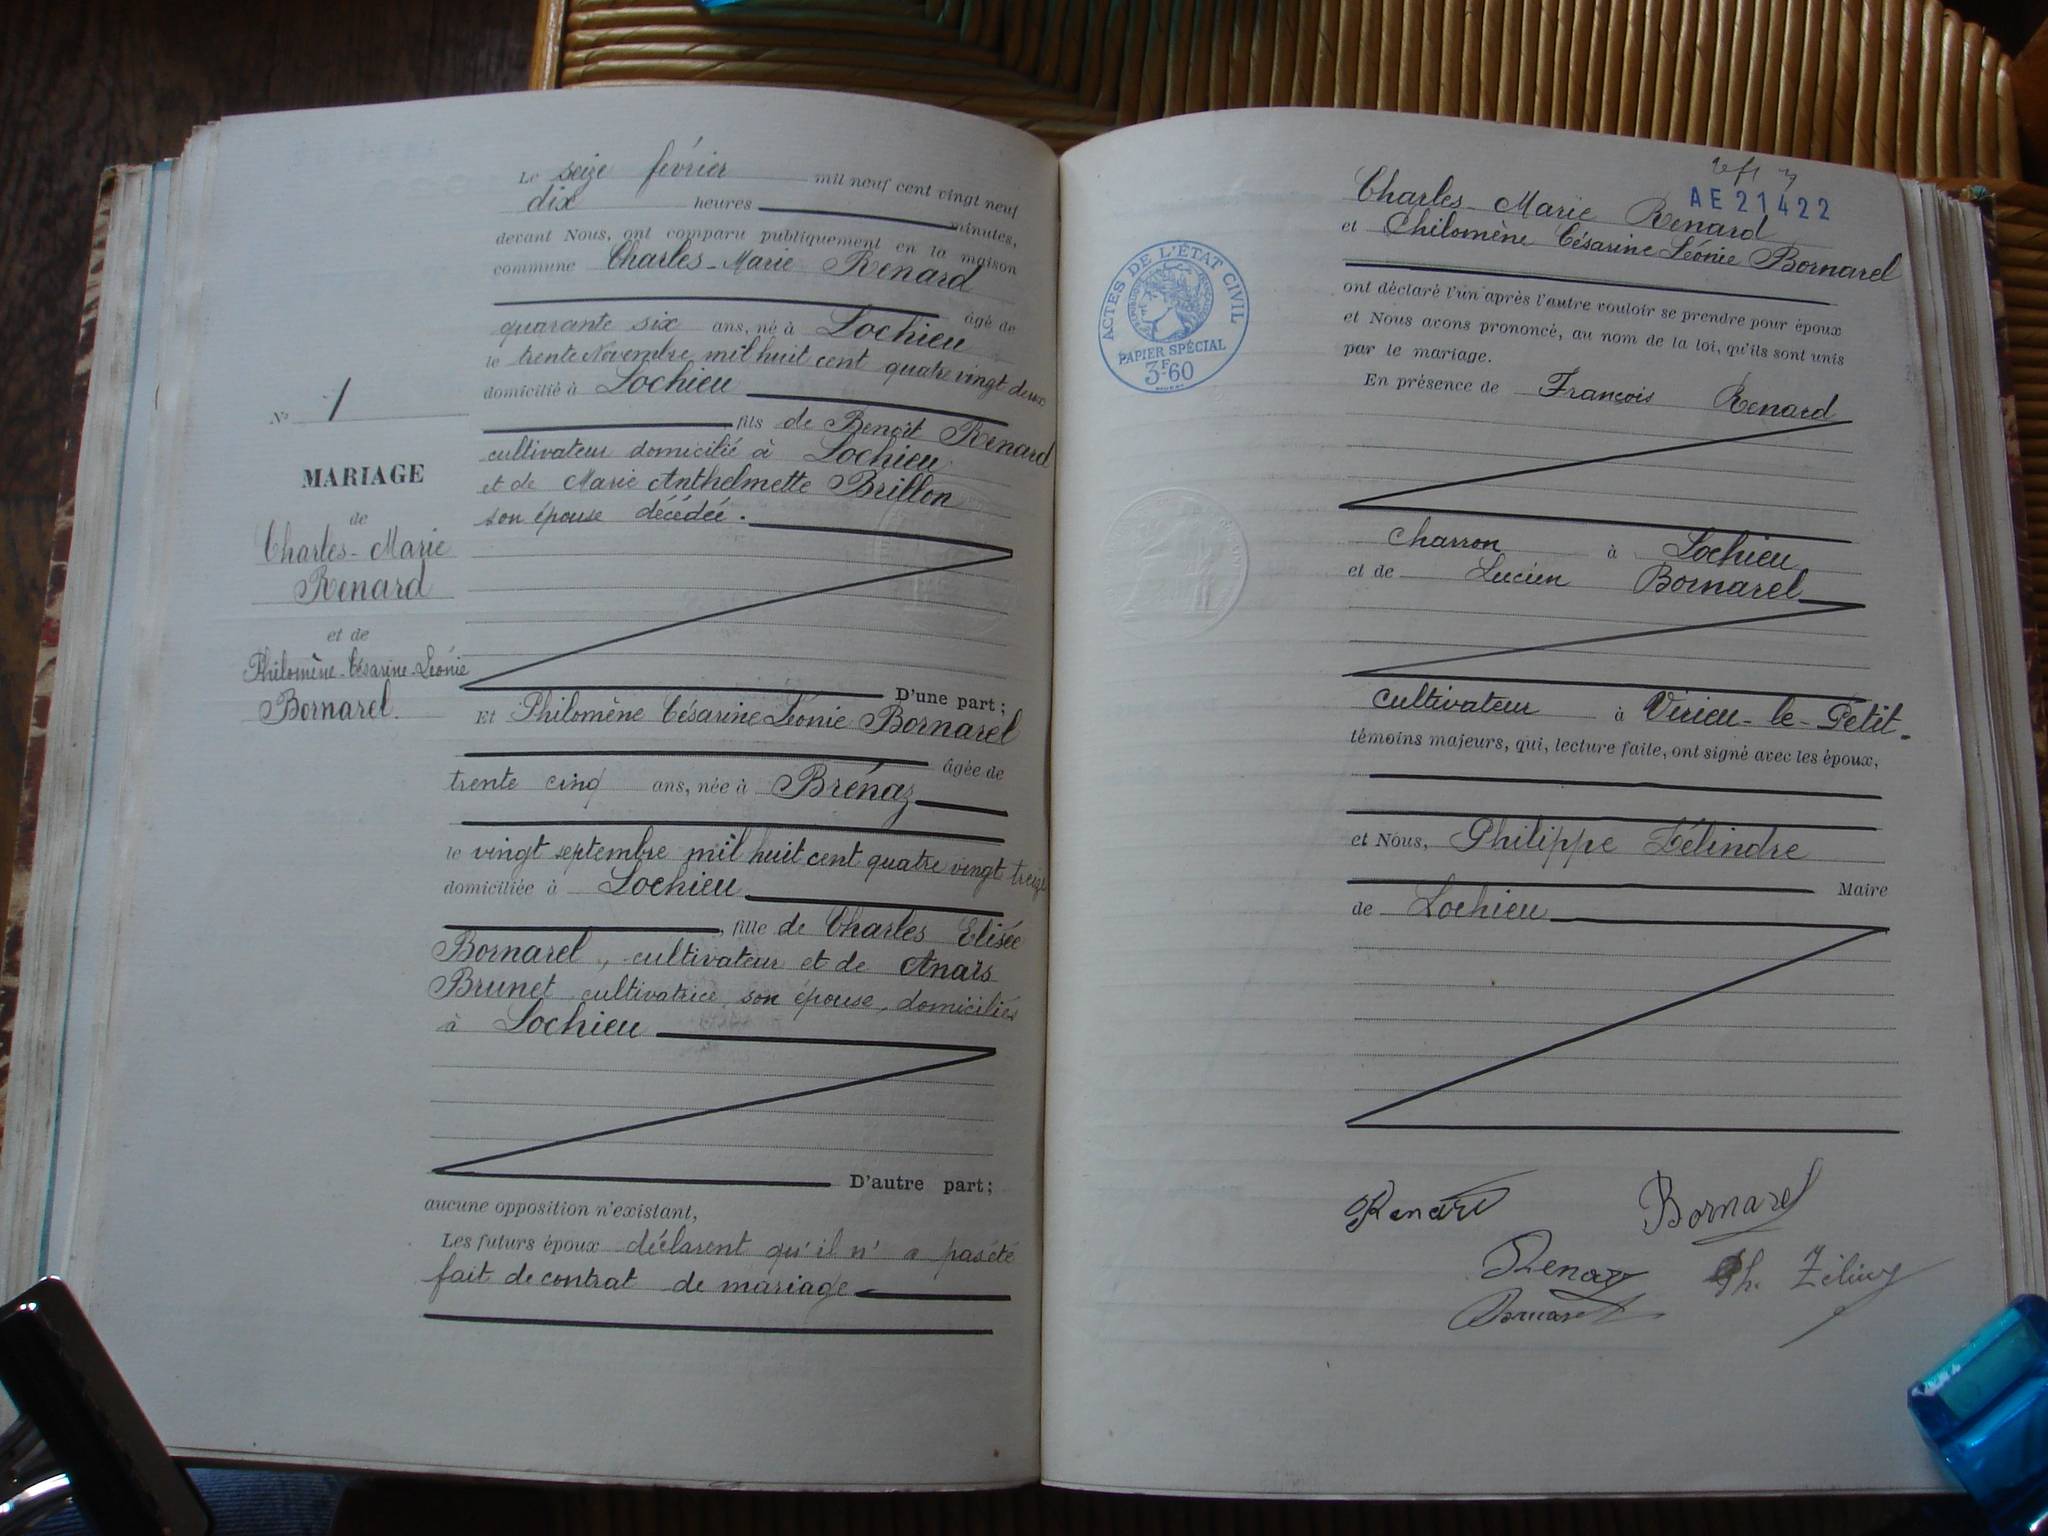 Le seize février mil neuf cent vingt neuf
dix heures minutes,
devant Nous, ont comparu publiquement en la maison
commune Charles-Marie Renard
âgé de
quarante six ans, né à Lochieu
le trente Novembre mil huit cent quatre vingt deux
domicilié à Lochieu
fils de Benoît Renard
cultivateur domicilié à Lochieu
et de Marie Anthelmette Brillon
son épouse décédée.
D'une part;
Et Philomène Césarine Léonie Bornarel
âgée de
trente cinq ans, née à Brénaz
le vingt septembre mil huit cent quatre vingt treize
domiciliée à Lochieu
, fille de Charles Elisée
Bornarel, cultivateur et de Anaïs
Brunet cultivatrice, son épouse, domiciliés
à Lochieu
D'autre part;
aucune opposition n'existant,
Les futurs époux déclarent qu'il n'a pas été
fait de contrat de mariage
N° 1
MARIAGE
de
Charles-Marie
Renard
et de
Philomène-Césarine-Léonie
Bornarel.
AE 21422
ACTES DE L'ÉTAT CIVIL
PAPIER SPÉCIAL
3F60
Charles-Marie Renard
et Philomène Césarine Léonie Bornarel
ont déclaré l'un après l'autre vouloir se prendre pour époux
et Nous avons prononcé, au nom de la loi, qu'ils sont unis
par le mariage.
En présence de François Renard
charron à Lochieu
et de Lucien Bornarel
cultivateur à Virieu-le-Petit.
témoins majeurs, qui, lecture faite, ont signé avec les époux,
et Nous, Philippe Zélindre
Maire
de Lochieu
Renard Bornarel
Renard Ph.
Bornarel